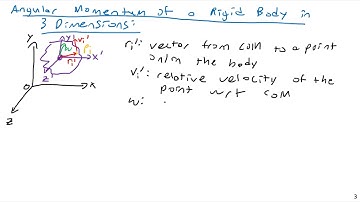 Angular Momentum of a Rigid Body in
3 Dimensions:
Y
y'
vi'
w
ri
ri'
x'
z'
O
X
Z
ri': vector from COM to a point
on/in the body
vi': relative velocity of the
point wrt COM
w:
3